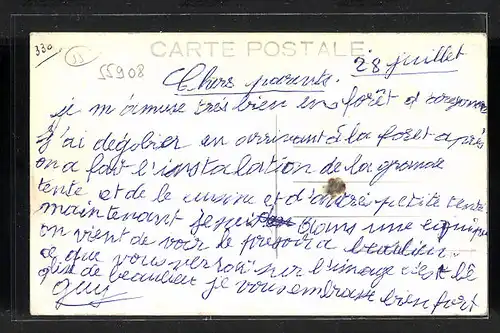 330
55
55908
CARTE POSTALE
28 juillet
Chers parents.
je m'amuse très bien en forêt d'argonne
J'ai degobier en arrivant à la forêt après
on a fait l'instalation de la grande
tente et de le cuisine et d'autre petite tente
maintenant je suis dans une equipe
on vient de voir le beaulieu
ce que vous verson sur l'image c'est le
de beaulieu je vous embrasse bien fort
guy